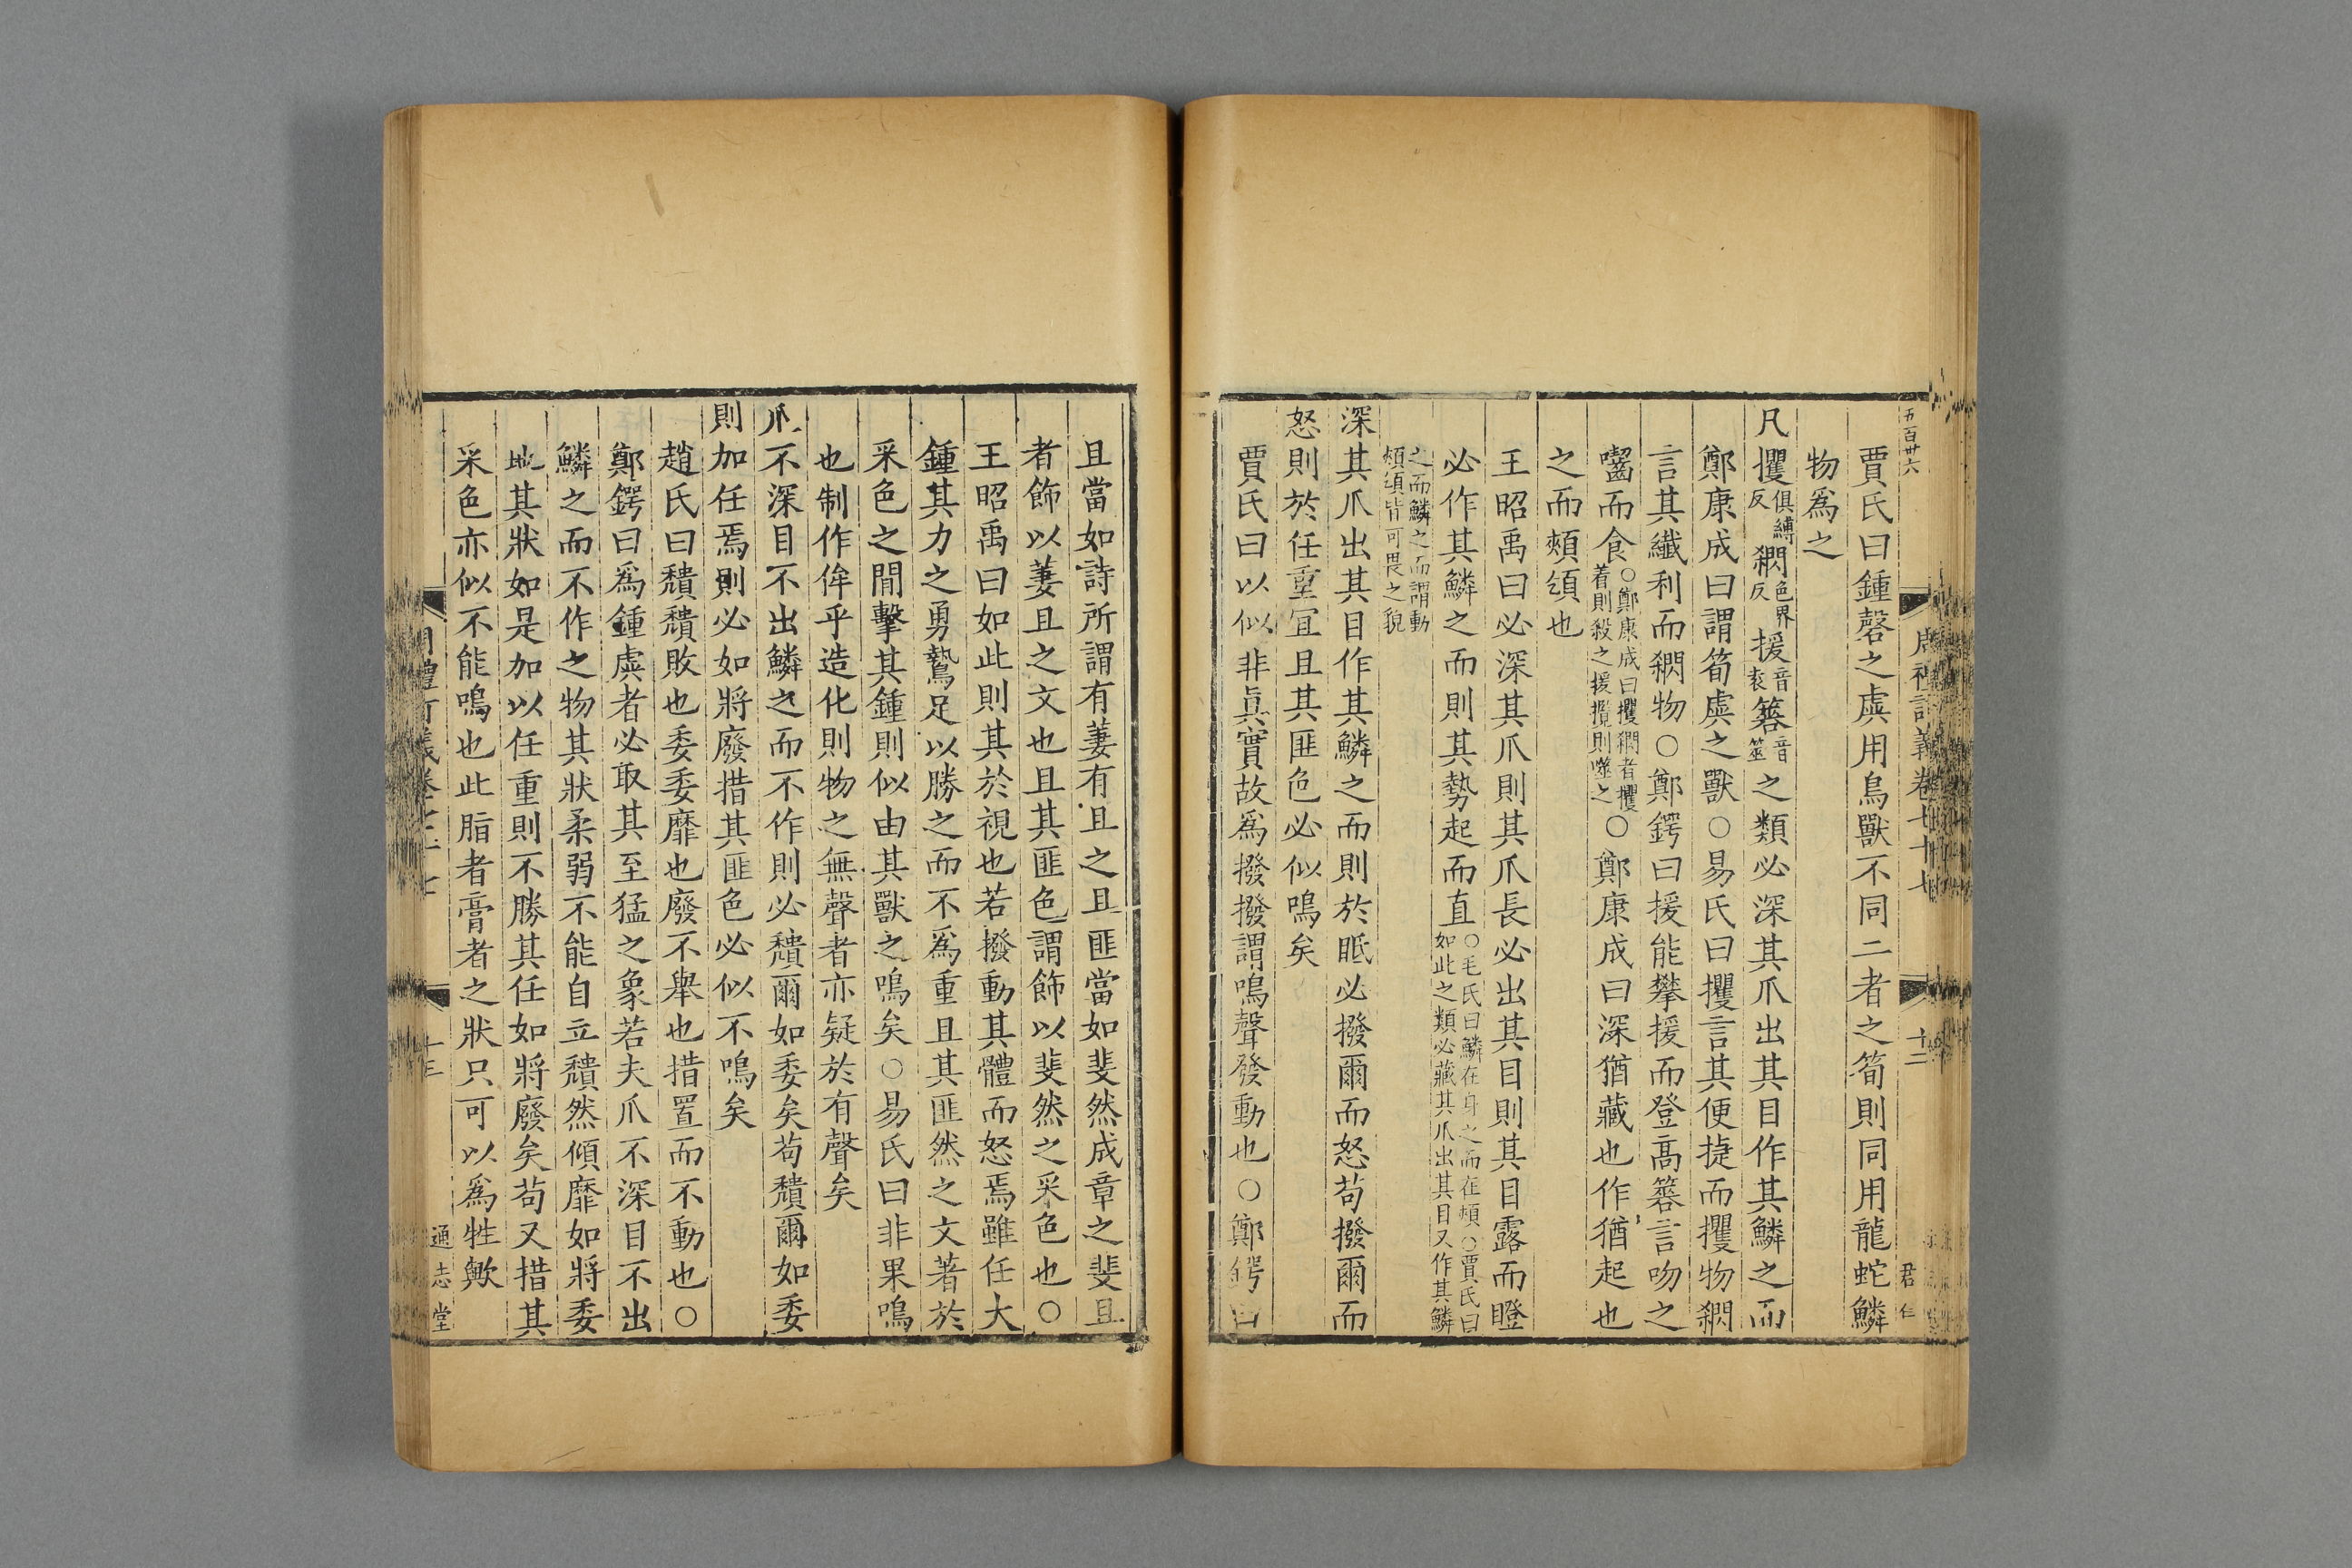 五百卅六
賈氏曰鍾磬之虡用鳥獸不同二者之筍則同用龍蛇鱗
物爲之
凡攫俱縛反閷色界反援音袁簭音筮之類必深其爪出其目作其鱗之而
鄭康成曰謂筍虡之獸○易氏曰攫言其便捷而攫物閷
言其纎利而閷物○鄭鍔曰援能攀援而登髙簭言吻之
囓而食○鄭康成曰攫閷者攫着則殺之援攬則噬之○鄭康成曰深猶藏也作猶起也
之而頰頌也
王昭禹曰必深其爪則其爪長必出其目則其目露而瞪
必作其鱗之而則其勢起而直○毛氏曰鱗在身之而在頰○賈氏曰如此之類必藏其爪出其目又作其鱗
之而鱗之而謂動頰頌皆可畏之貌
深其爪出其目作其鱗之而則於眡必撥爾而怒茍撥爾而
怒則於任重宜且其匪色必似鳴矣
賈氏曰以似非真實故爲撥撥謂鳴聲發動也○鄭鍔曰
周禮訂義卷七十七
十二
君仁
且當如詩所謂有萋有且之且匪當如斐然成章之斐且
者飾以萋且之文也且其匪色謂飾以斐然之采色也○
王昭禹曰如此則其於視也若撥動其體而怒焉雖任大
鍾其力之勇鷙足以勝之而不爲重且其匪然之文著於
采色之間擊其鍾則似由其獸之鳴矣○易氏曰非果鳴
也制作侔乎造化則物之無聲者亦疑於有聲矣
爪不深目不出鱗之而不作則必穨爾如委矣茍穨爾如委
則加任焉則必如將廢措其匪色必似不鳴矣
趙氏曰穨穨敗也委委靡也廢不舉也措置而不動也○
鄭鍔曰爲鍾虡者必取其至猛之象若夫爪不深目不出
鱗之而不作之物其狀柔弱不能自立穨然傾靡如將委
地其狀如是加以任重則不勝其任如將廢矣茍又措其
采色亦似不能鳴也此脂者膏者之狀只可以爲牲歟
周禮訂義卷七十七
十三
通志堂